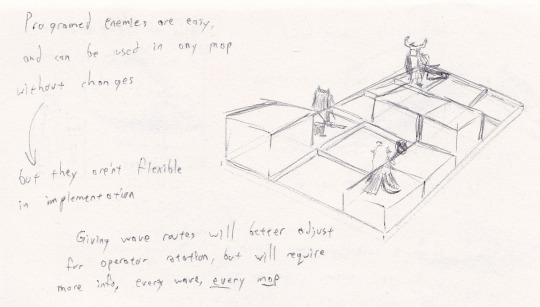 Programed enemies are easy,
and can be used in any map
without changes
but they aren't flexible
in implementation
Giving wave routes will better adjust
for operator rotation, but will require
more info, every wave, every map